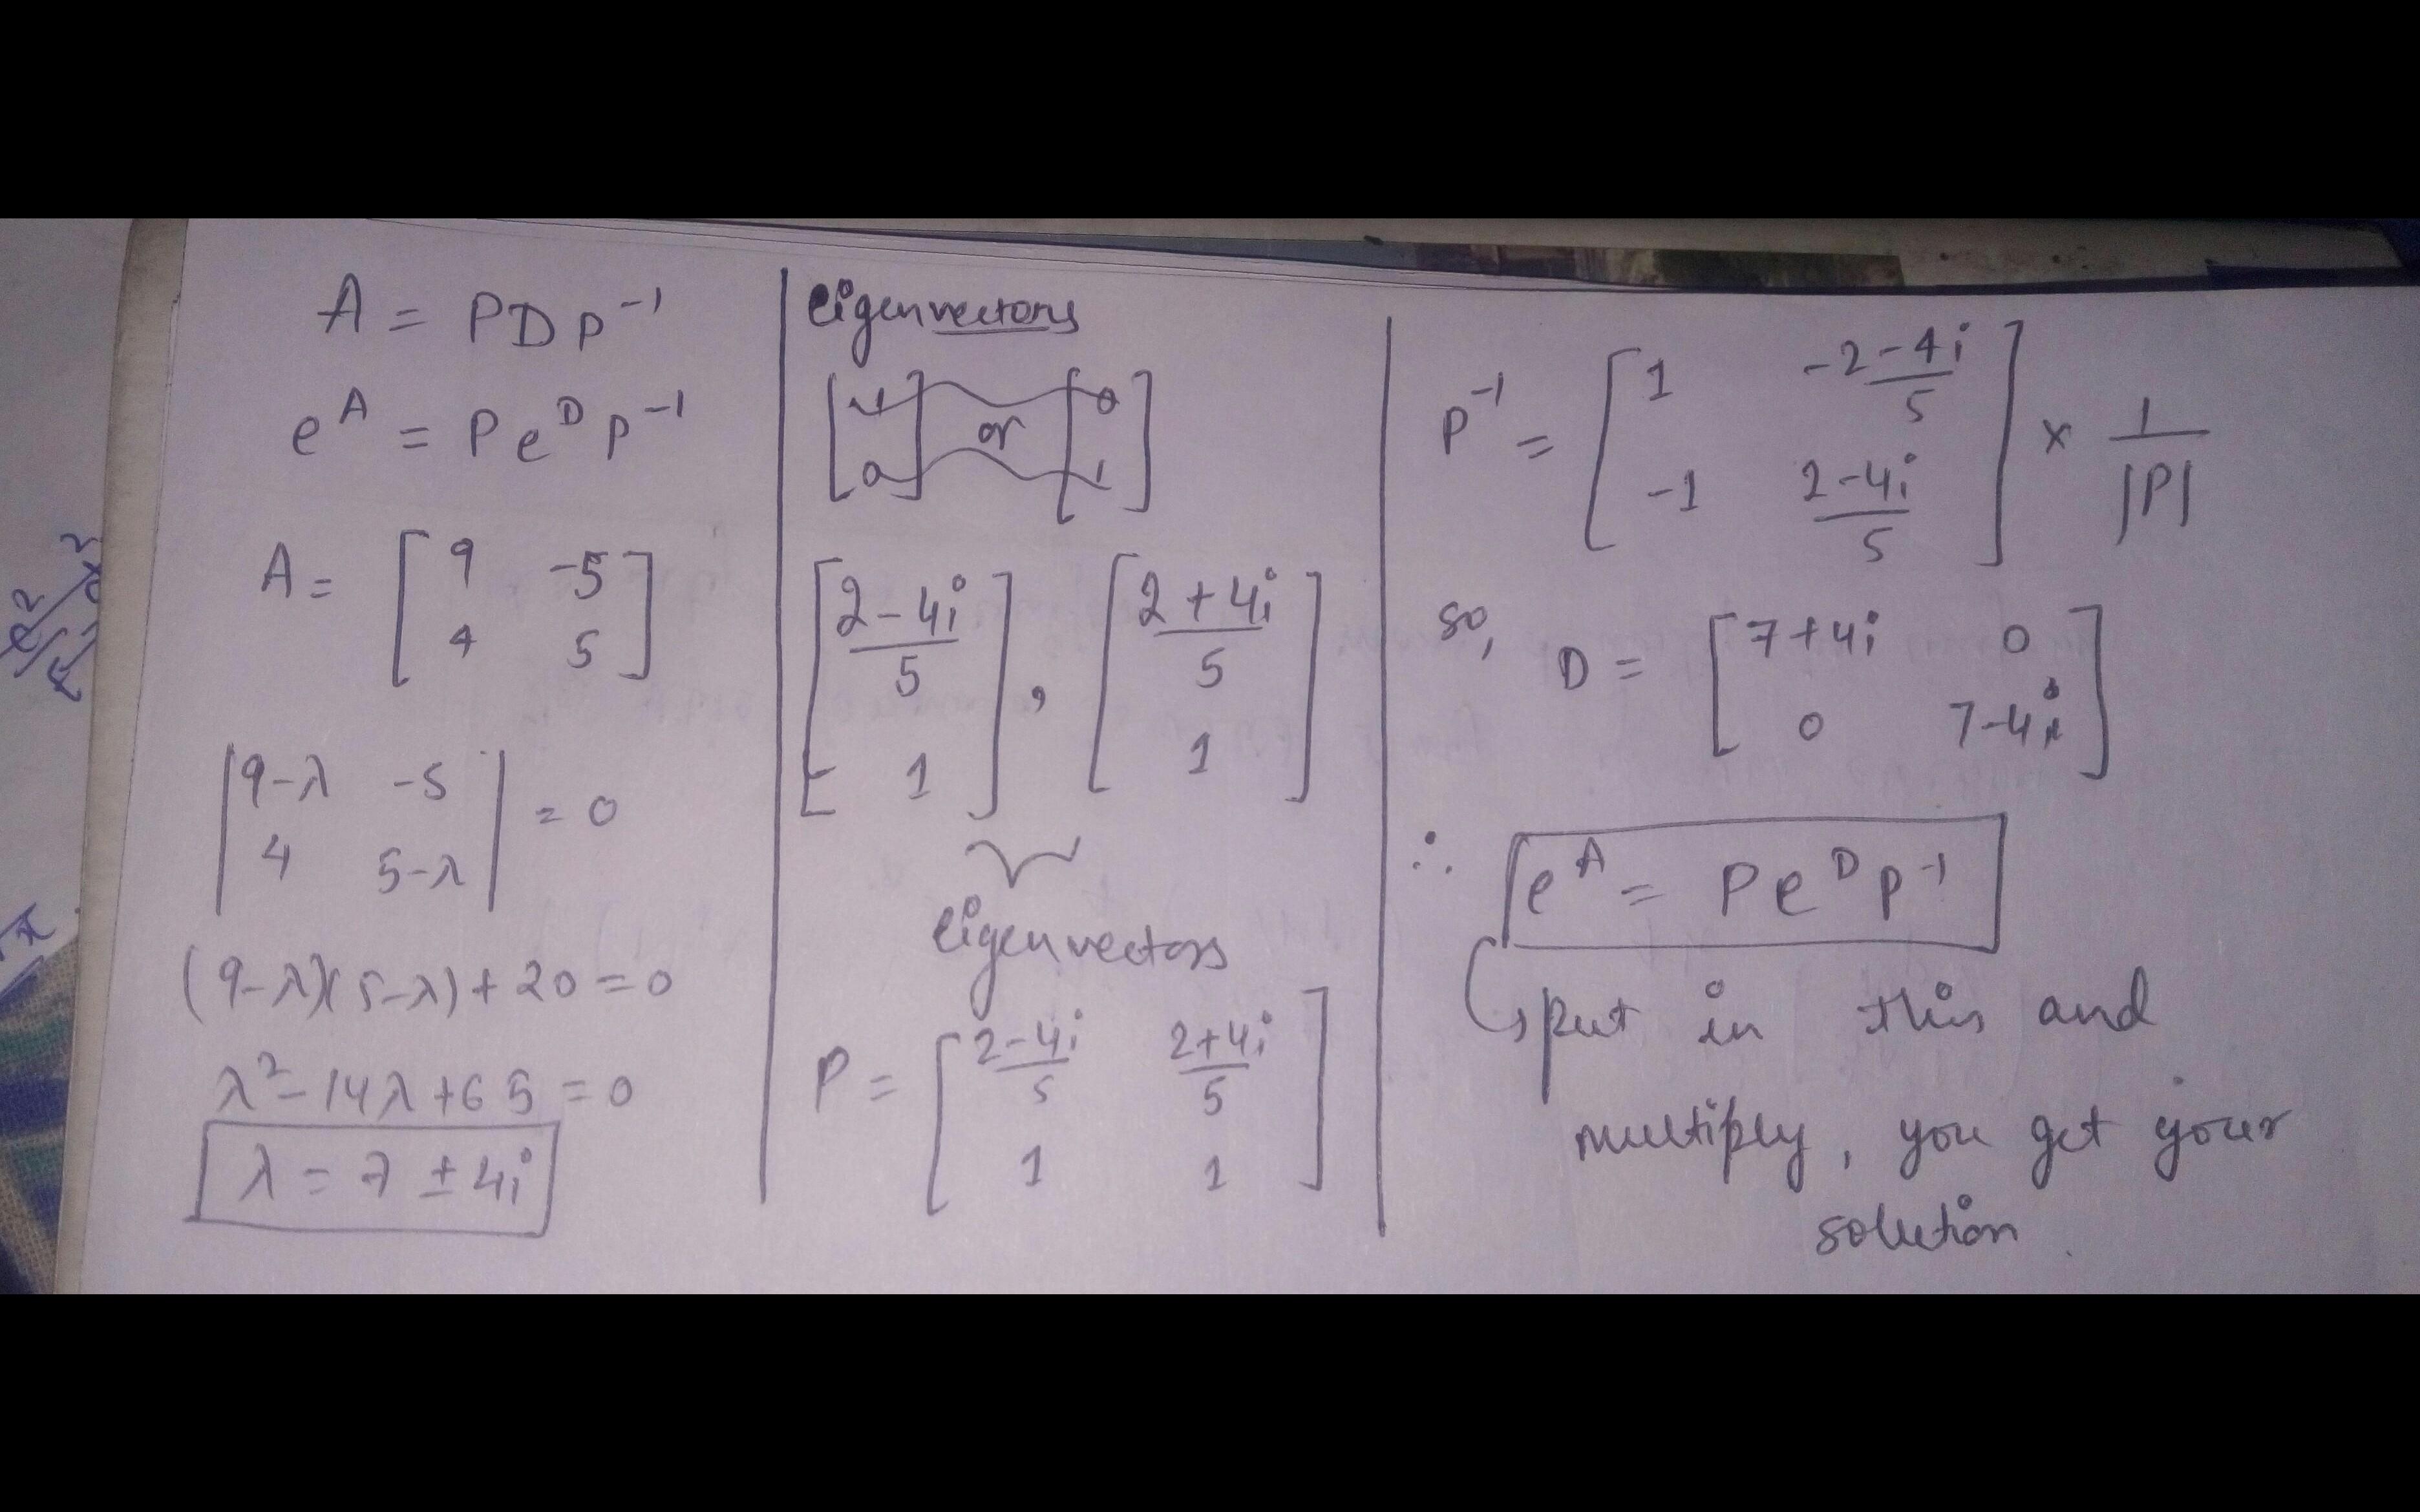 A = PDP⁻¹
e^A = P e^D P⁻¹
A = [9 -5; 4 5]
|9-λ -5; 4 5-λ| = 0
(9-λ)(5-λ)+20=0
λ²-14λ+65=0
λ = 7 ± 4i
eigenvectors
[1; 0] or [0; 1]
[(2-4i)/5; 1] , [(2+4i)/5; 1]
eigenvectors
P = [(2-4i)/5 (2+4i)/5; 1 1]
P⁻¹ = [1 (-2-4i)/5; -1 (2-4i)/5] × 1/|P|
so, D = [7+4i 0; 0 7-4i]
∴ e^A = P e^D P⁻¹
put in this and
multiply, you get your
solution.